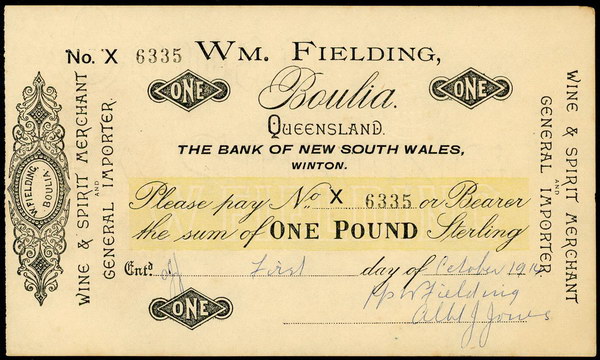 No. X 6335 WM. FIELDING,
ONE ONE
Boulia.
QUEENSLAND.
THE BANK OF NEW SOUTH WALES,
WINTON.
Please pay No. X 6335 or Bearer
the sum of ONE POUND Sterling
Entd. First day of October 1914
pp W Fielding
Albt J Jones
ONE
WINE & SPIRIT MERCHANT
AND
GENERAL IMPORTER.
W. FIELDING
BOULIA
WINE & SPIRIT MERCHANT
AND
GENERAL IMPORTER.